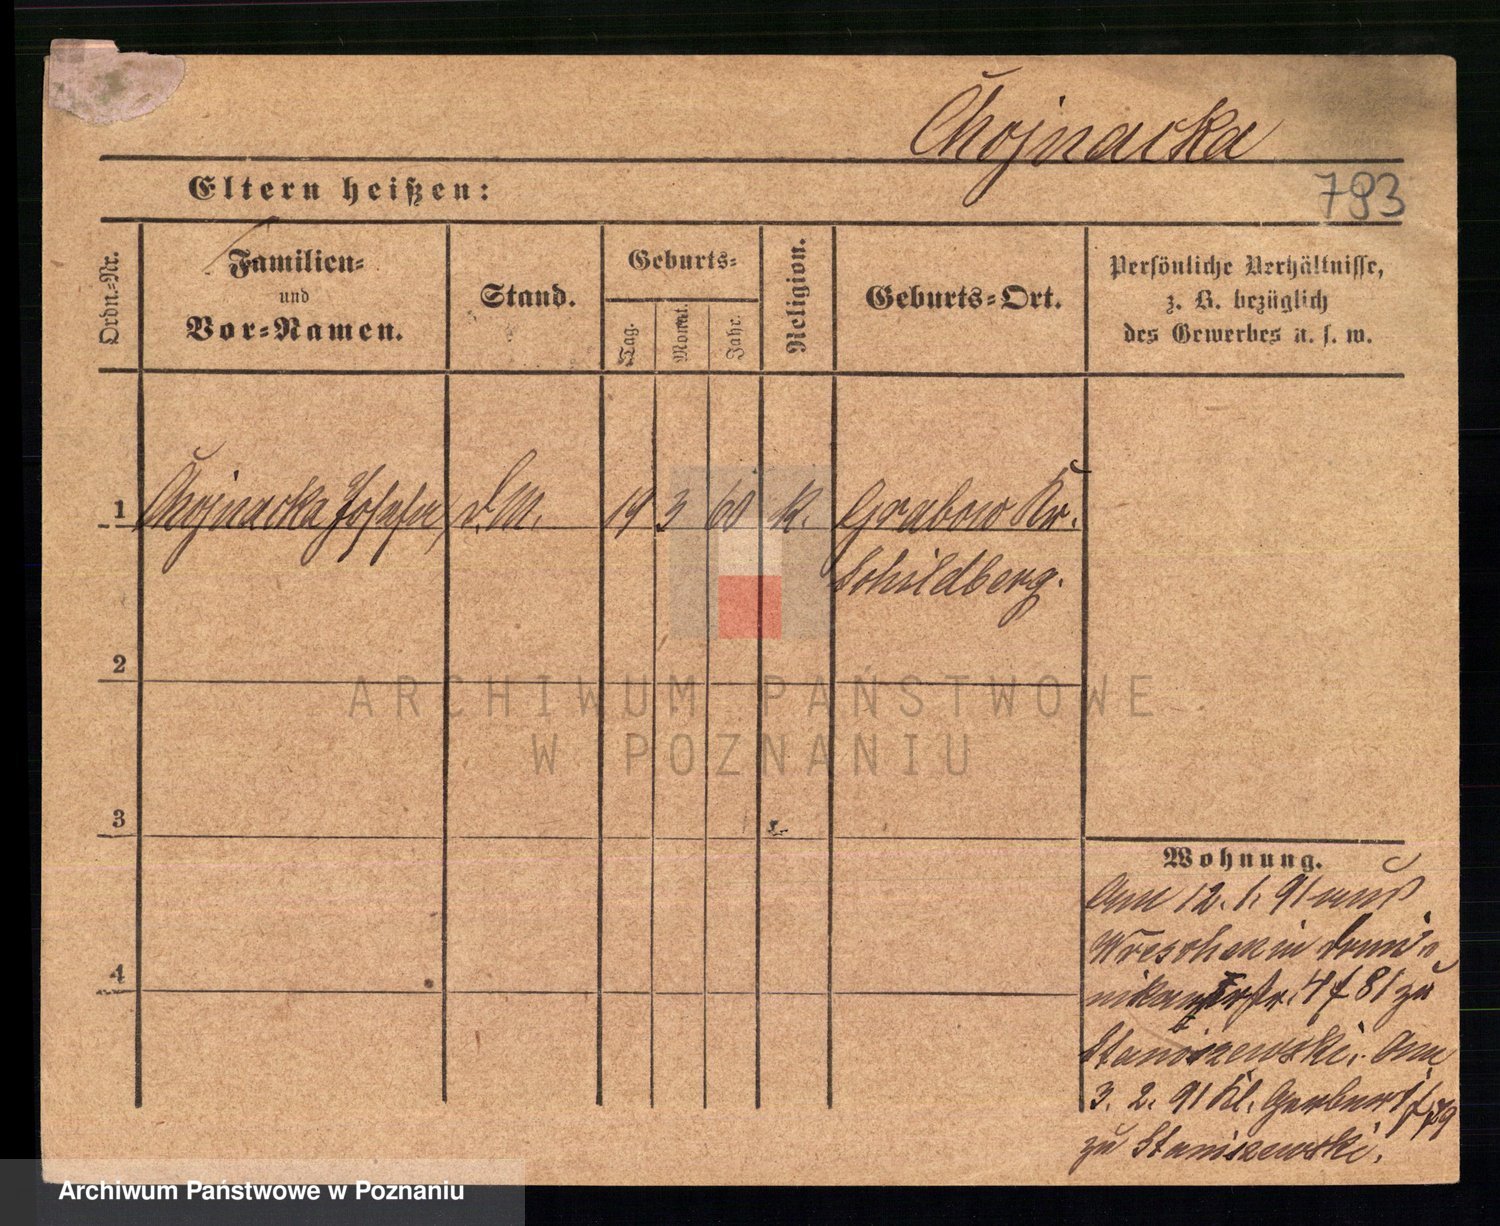 Chojnacka
Eltern heißen:
793
Ordn.-Nr.
Familien-
und
Vor-Namen.
Stand.
Geburts-
Tag.
Monat.
Jahr.
Religion.
Geburts-Ort.
Persönliche Verhältnisse,
z. B. bezüglich
des Gewerbes u. s. w.
1 Chojnacka Josefa d. M. 19 3 60 k. Grabow Kr.
Schildberg.
2
3
4
Wohnung.
Am 12. 1. 91 aus
Wreschen in Domi-
nikanerstr. 4 f 81 zu
Staniszewski. Am
3. 2. 91 Kl. Gerberst
zu Staniszewski.
ARCHIWUM PAŃSTWOWE
W POZNANIU
Archiwum Państwowe w Poznaniu